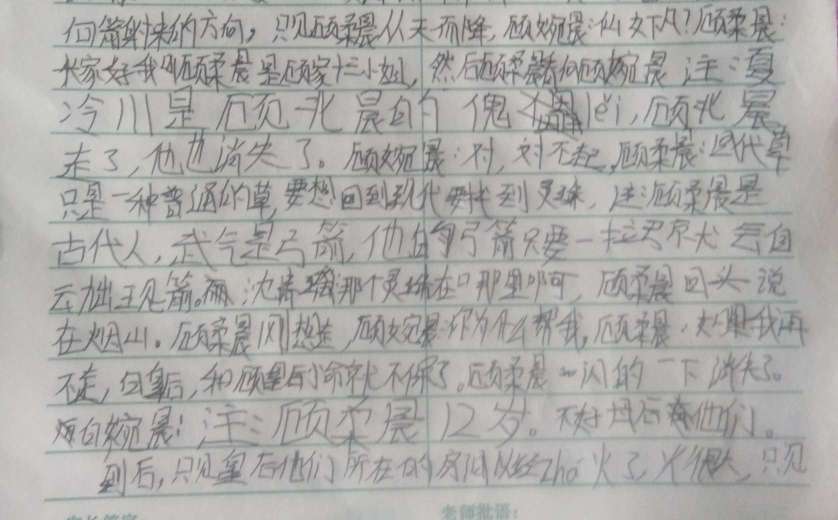 向箭射来的方向，只见顾柔晨从天而降，顾婉晨：仙女下凡？顾柔晨：
大家好我叫顾柔晨是顾家十三小姐，然后顾柔晨看向顾婉晨 注：夏
冷川是顾北晨的傀儡lěi，顾北晨
走了，他也消失了。顾婉晨：对，对不起，顾柔晨：回代草
只是一种普通的草，要想回到现代要找到灵珠，注：顾柔晨是
古代人，武气是弓箭，他的弓箭只要一拉 气自
云 出王见箭。 沈 那个灵珠在 那里 ，顾柔晨回头说
在烟山。顾柔晨刚想走，顾婉晨：你为什么帮我，顾柔晨：如果我再
不走，白皇后，和顾皇后小命就不保了。顾柔晨一闪的一下消失了。
顾婉晨！注：顾柔晨12岁。不好母后 他们。
到后，只见皇后他们所在的房间以经zháo火了，火很大，只见
老师批语：